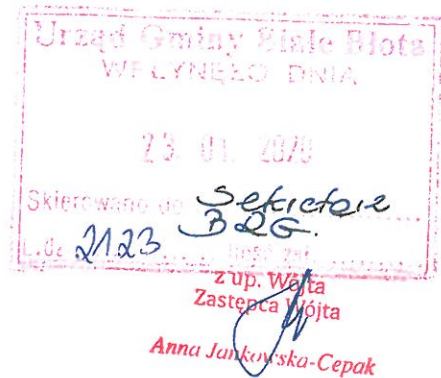 Urząd Gminy Białe Błota
WPŁYNĘŁO DNIA
23. 01. 2020
Skierowano do
BRG.
L.dz. 2123
z up. Wójta
Zastępca Wójta
Anna Jankowska-Cepak